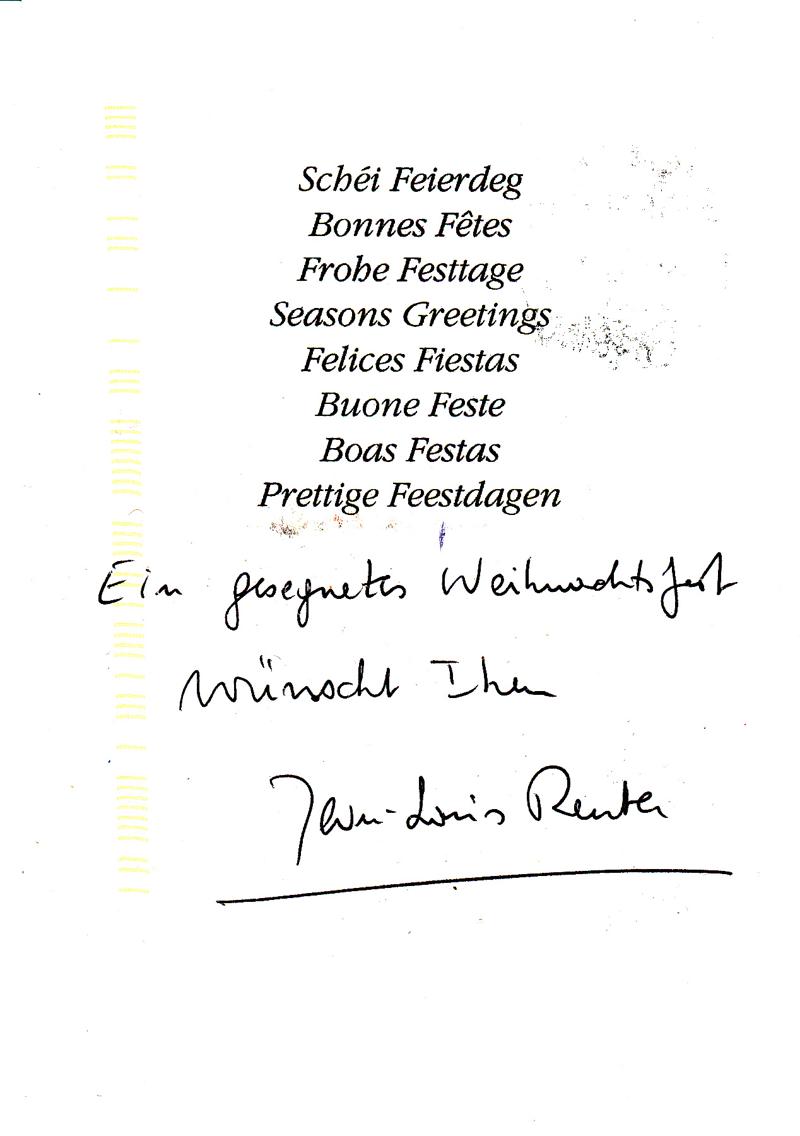 Schéi Feierdeg
Bonnes Fêtes
Frohe Festtage
Seasons Greetings
Felices Fiestas
Buone Feste
Boas Festas
Prettige Feestdagen
Ein gesegnetes Weihnachtsfest
wünscht Ihnen
Jean-Louis Reuter